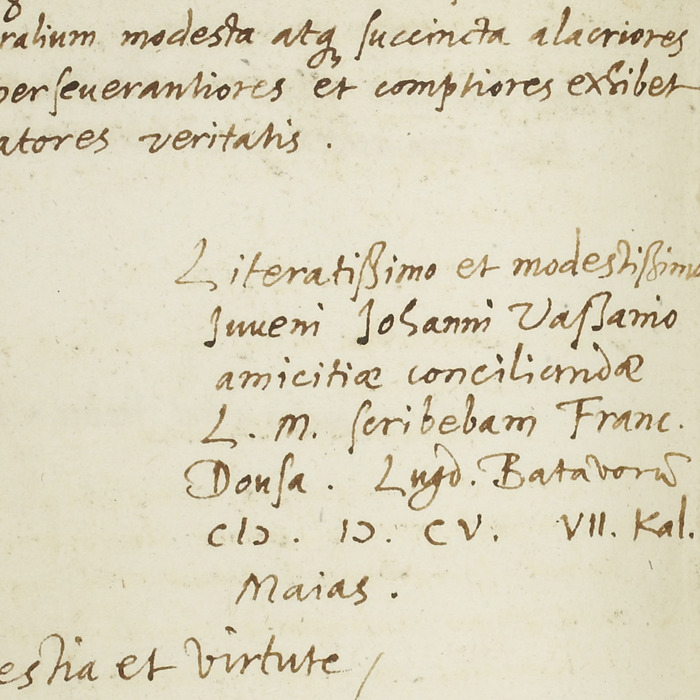 ralium modesta atq succincta alacriores
perseverantiores et comptiores exhibet
atores veritatis .
Literatißimo et modestißimo
Juveni Johanni Vaßanio
amicitiæ conciliandæ
L. M. scribebam Franc.
Dousa . Lugd. Batavorū
CIↃ . IↃ. CV. VII. Kal.
Maias .
estia et virtute /